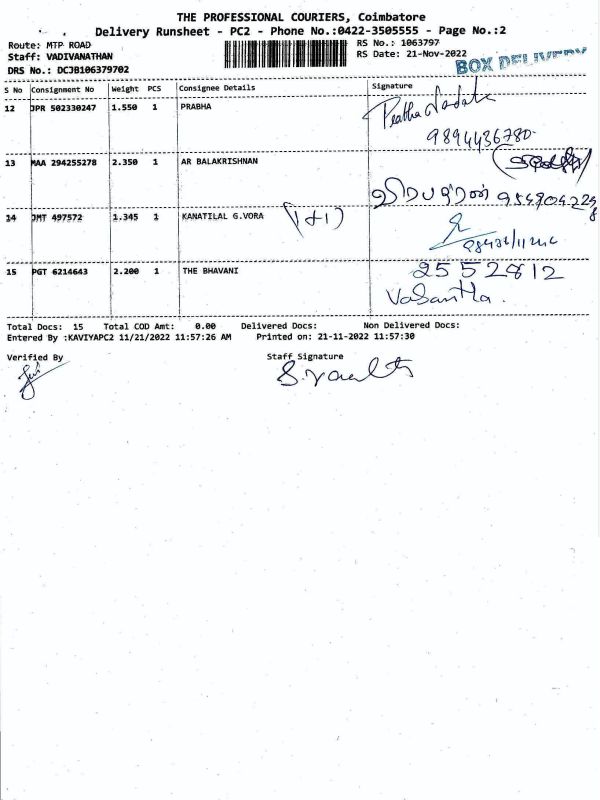 THE PROFESSIONAL COURIERS, Coimbatore
Delivery Runsheet - PC2 - Phone No.:0422-3505555 - Page No.:2
Route: MTP ROAD RS No.: 1063797
Staff: VADIVANATHAN RS Date: 21-Nov-2022
BOX DELIVERY
DRS No.: DCJB106379702
S No Consignment No Weight PCS Consignee Details Signature
12 JPR 502330247 1.550 1 PRABHA
9894436780
13 MAA 294255278 2.350 1 AR BALAKRISHNAN
14 JMT 497572 1.345 1 KANATILAL G.VORA (1+1)
15 PGT 6214643 2.200 1 THE BHAVANI 2552812
Vasantha.
Total Docs: 15 Total COD Amt: 0.00 Delivered Docs: Non Delivered Docs:
Entered By :KAVIYAPC2 11/21/2022 11:57:26 AM Printed on: 21-11-2022 11:57:30
Verified By Staff Signature